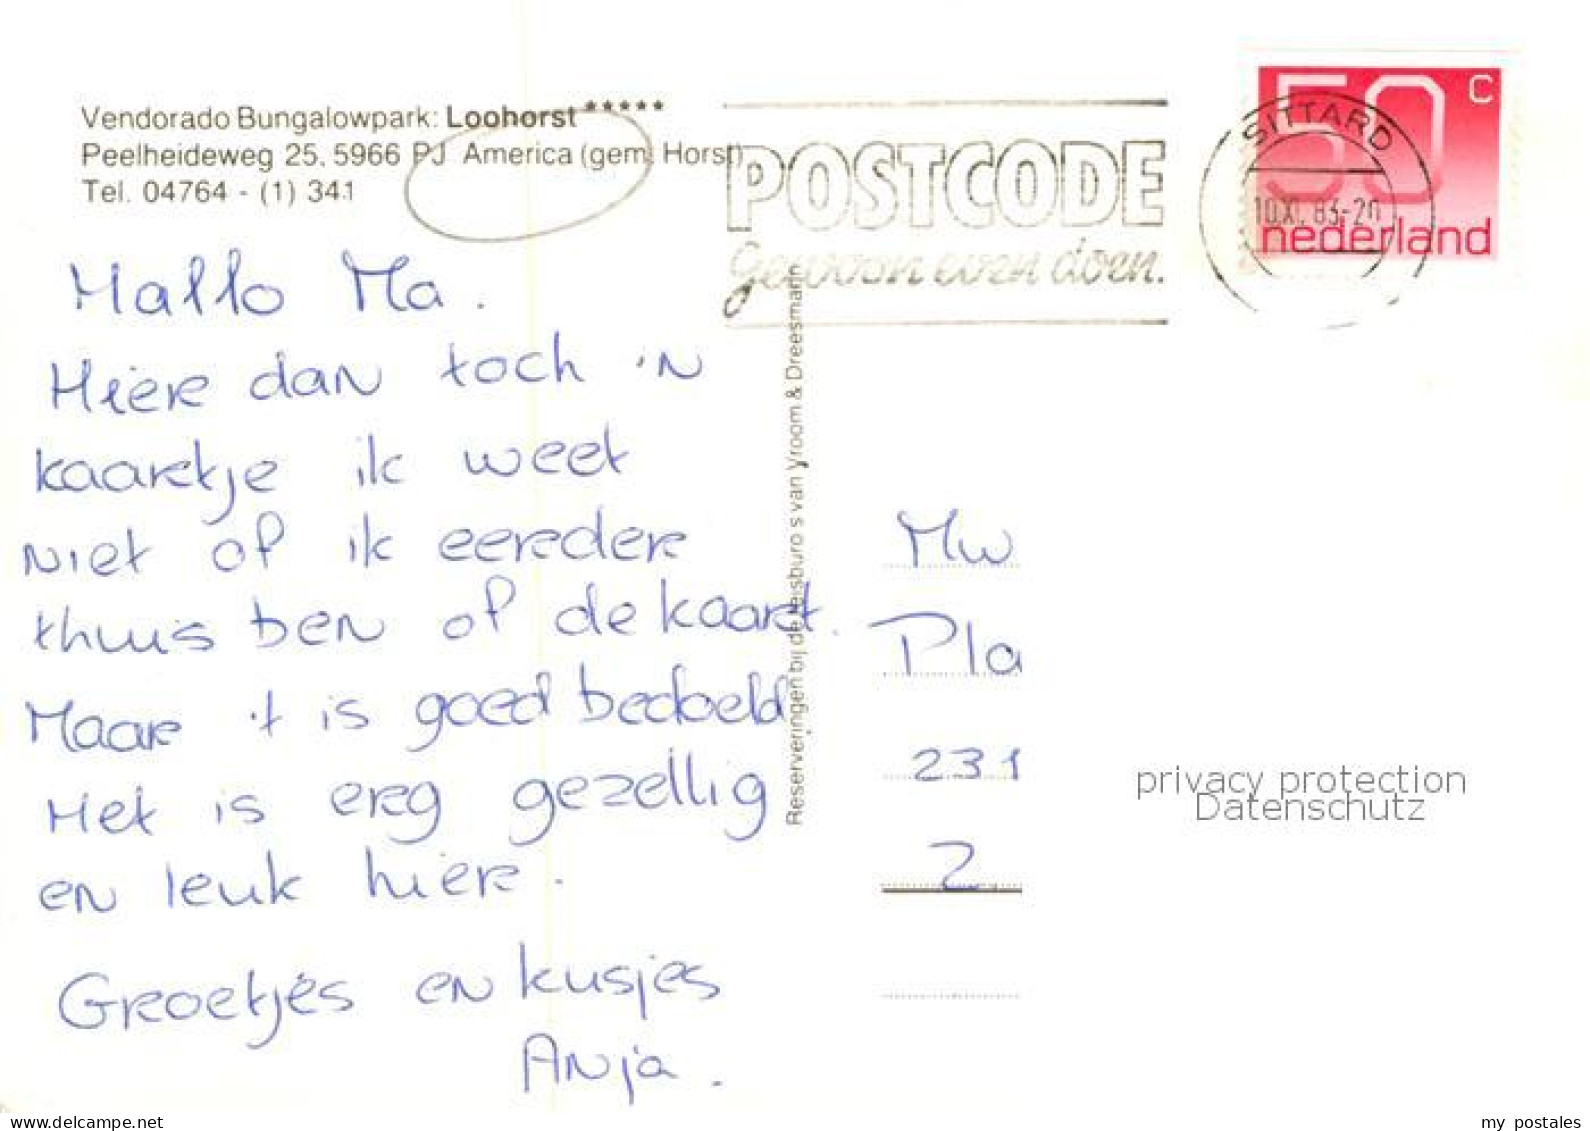 Vendorado Bungalowpark: Loohorst*****
Peelheideweg 25, 5966 PJ America (gem. Horst)
Tel. 04764 - (1) 341
POSTCODE
Gewoon even doen.
SITTARD
10.XI.83-20
50 c
nederland
Hallo Ma.
Hier dan toch 'n
kaartje ik weet
niet of ik eerder
thuis ben of de kaart.
Maar 't is goed bedoeld
Het is erg gezellig
en leuk hier.
Groetjes en kusjes
Anja.
Reserveringen bij de reisburo s van Vroom & Dreesmann
Mw
Pla
231
2
privacy protection
Datenschutz
delcampe.net
my_postales